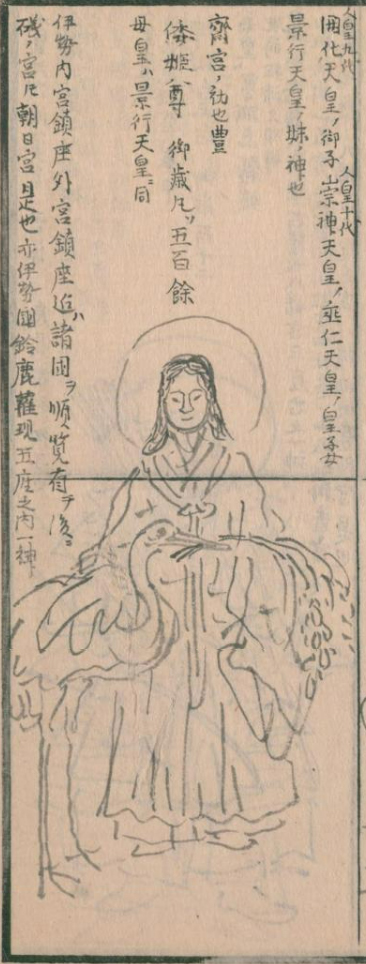 人皇九代
人皇十代
開化天皇ノ御子崇神天皇ノ垂仁天皇ノ皇子女
景行天皇ノ妹ノ神也
齋宮ノ初也豊
倭姫ノ尊 御歳凡ソ五百餘
母皇ハ景行天皇ニ同
伊勢内宮鎮座外宮鎮座迄ハ諸國ヲ順覧有テ後ニ
磯ノ宮凡朝日宮是也亦伊勢國鈴鹿權現五座之内一神